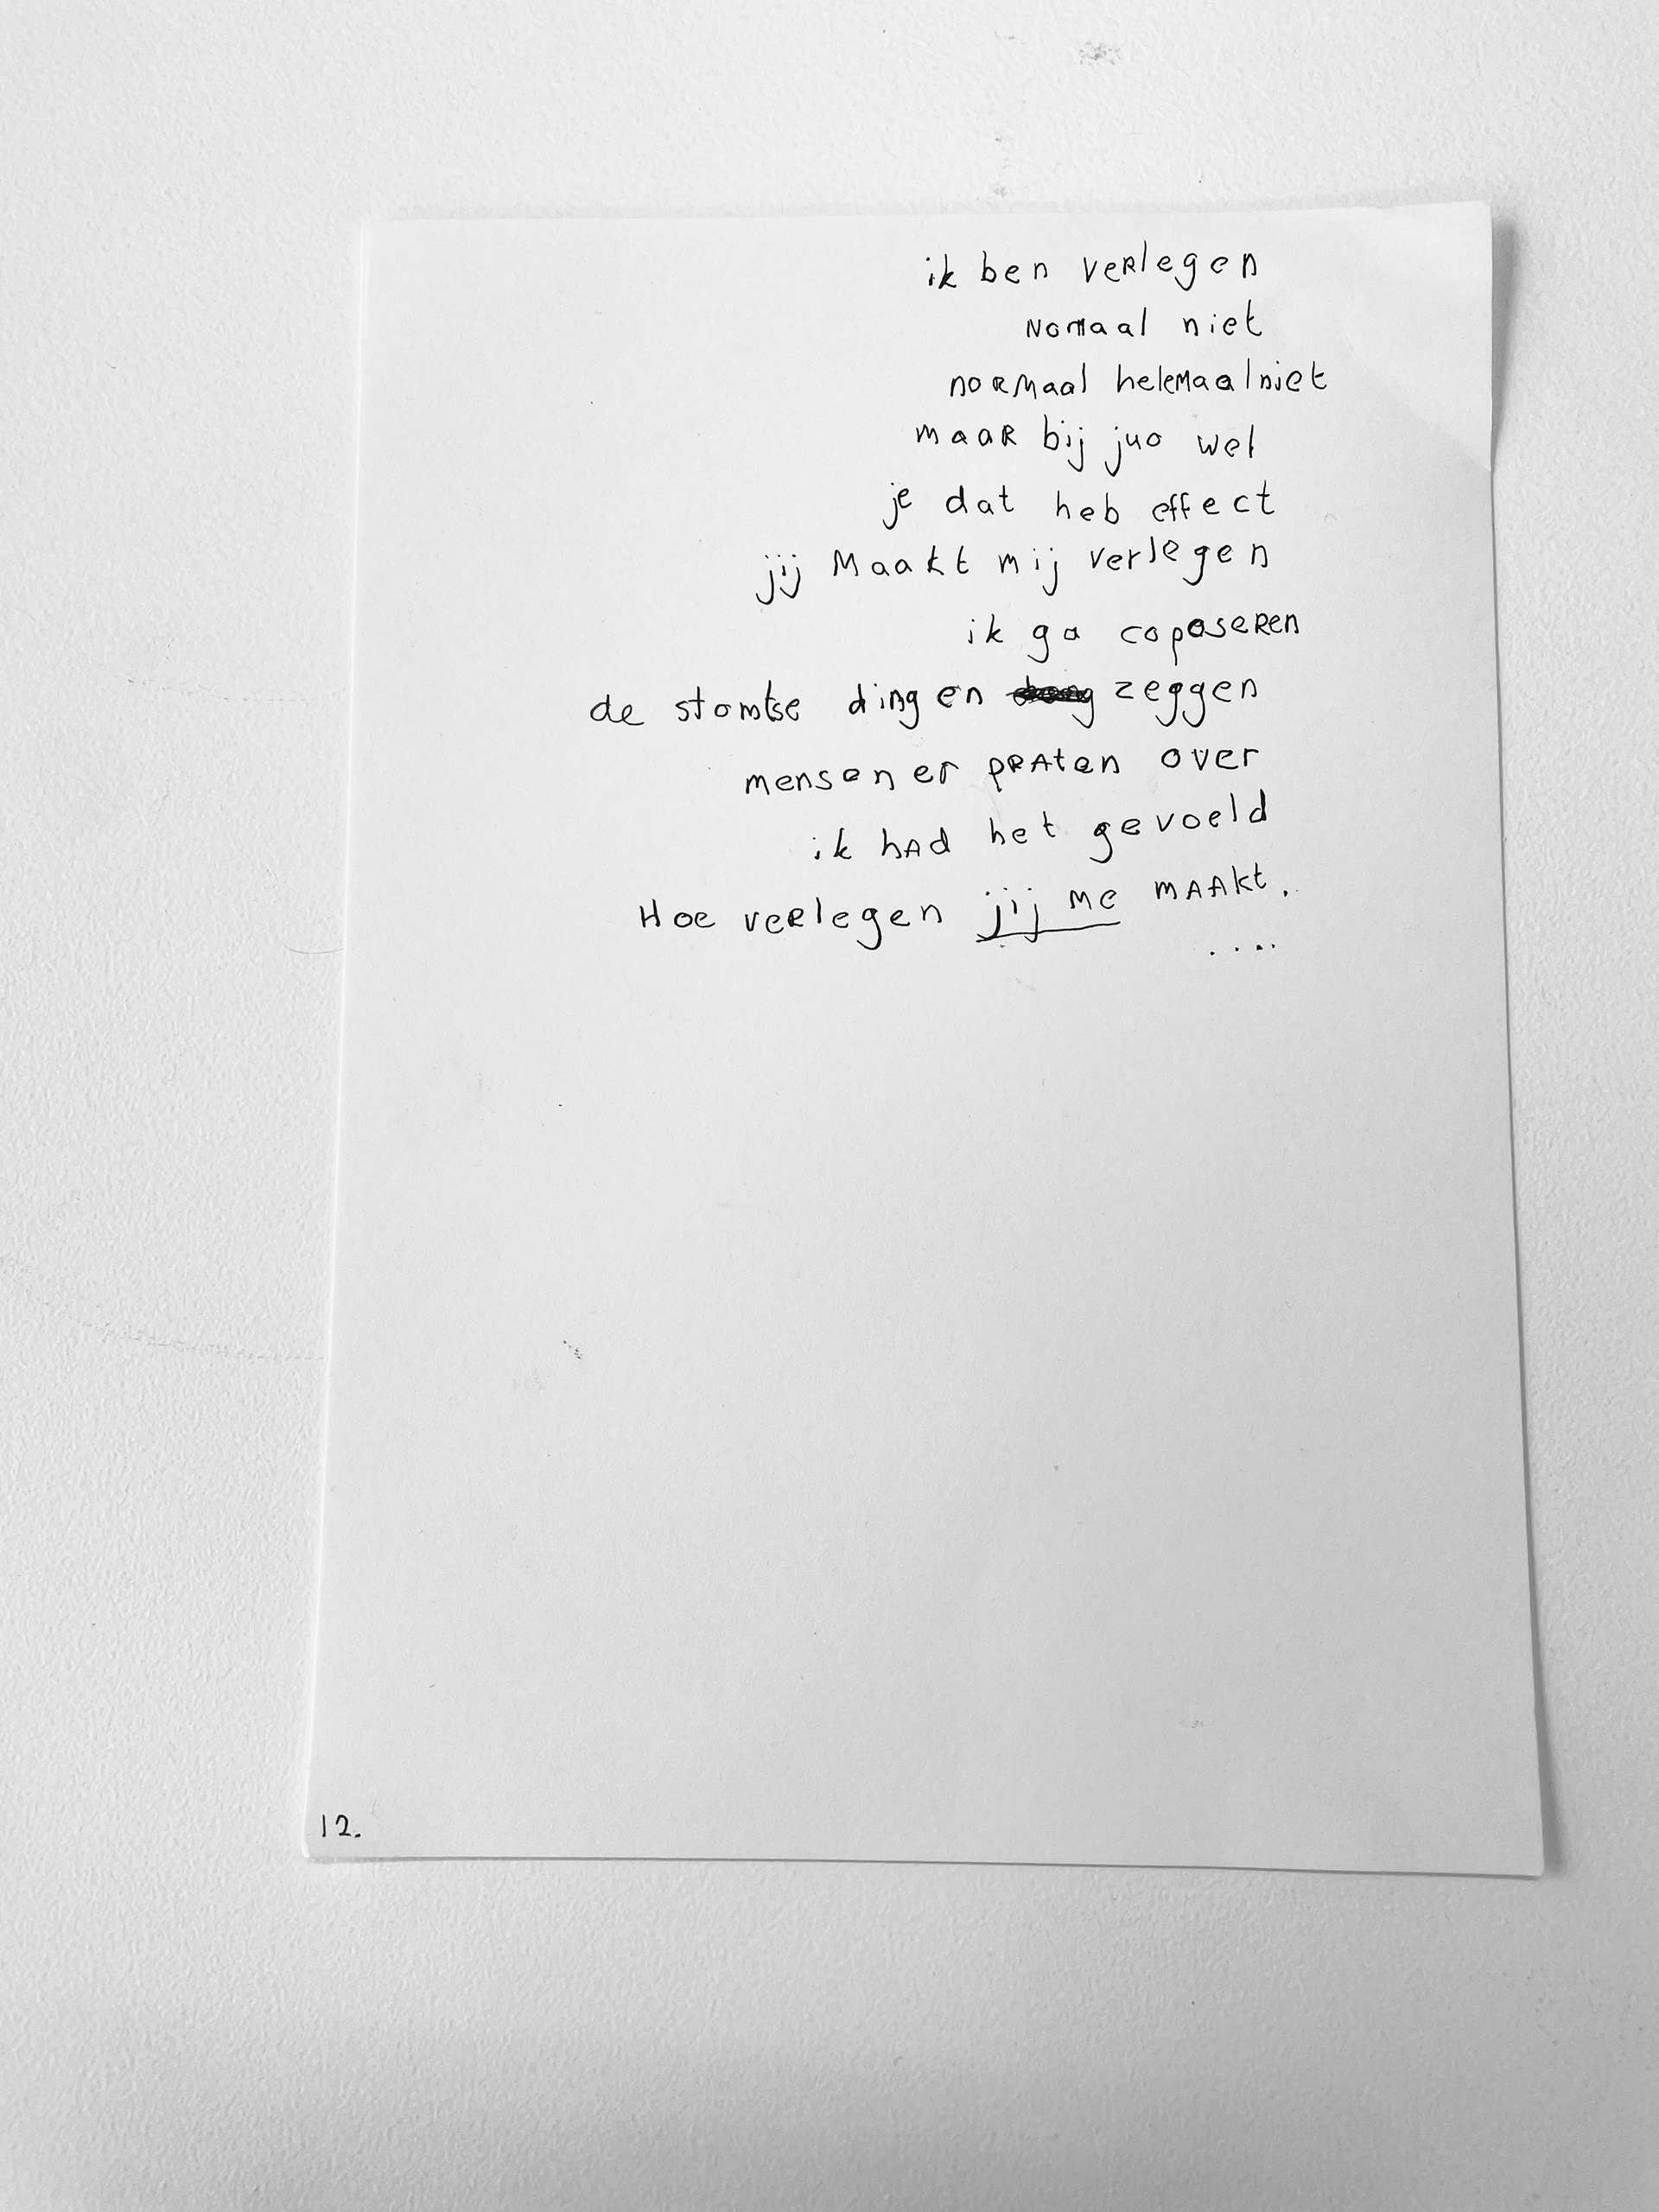 ik ben verlegen
Nomaal niet
normaal helemaalniet
maar bij juo wel
je dat heb effect
jij Maakt mij verlegen
ik ga coposeren
de stomtse dingen zeggen
mensen er praten over
ik had het gevoeld
Hoe verlegen jij me maakt.
....
12.